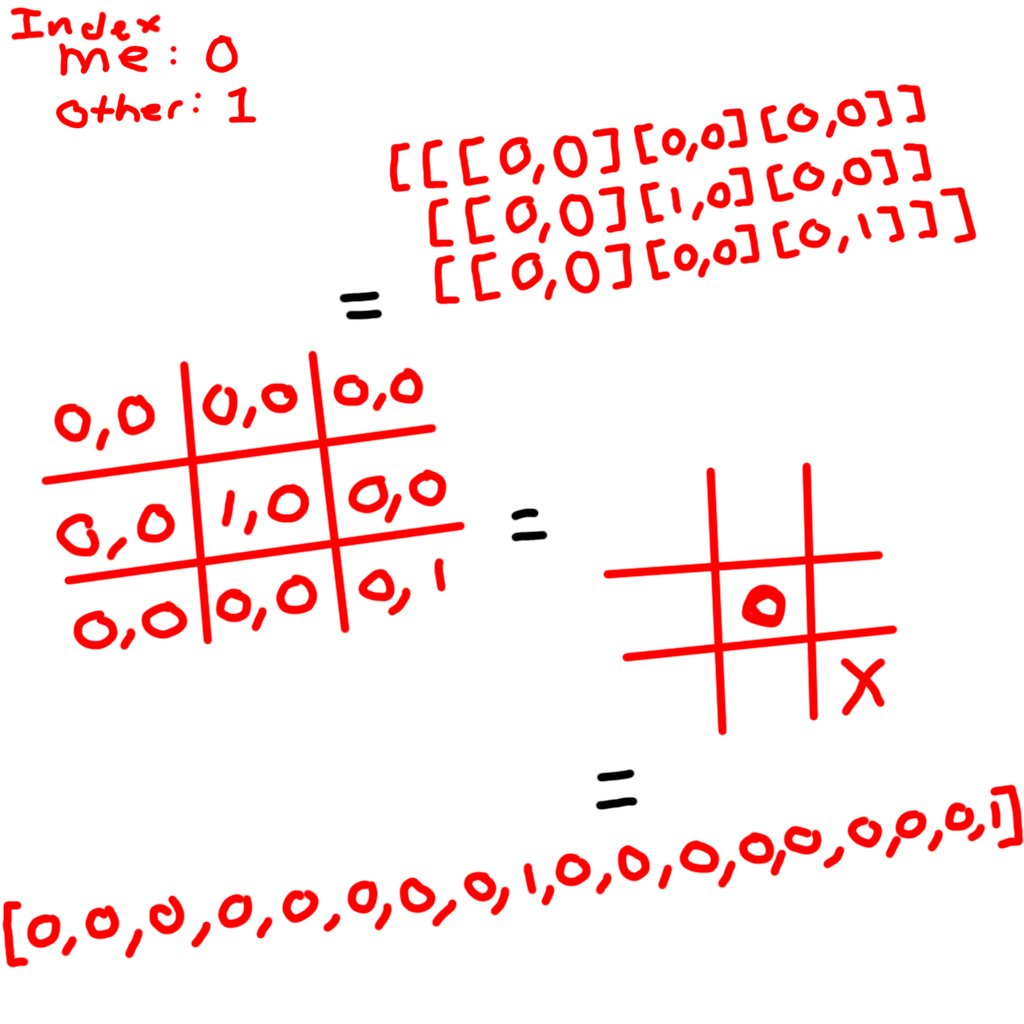 Index
me: 0
other: 1
[[[0,0][0,0][0,0]]
[[0,0][1,0][0,0]]
[[0,0][0,0][0,1]]]
=
0,0 0,0 0,0
0,0 1,0 0,0
0,0 0,0 0,1
=
O
X
=
[0,0,0,0,0,0,0,0,1,0,0,0,0,0,0,0,0,1]